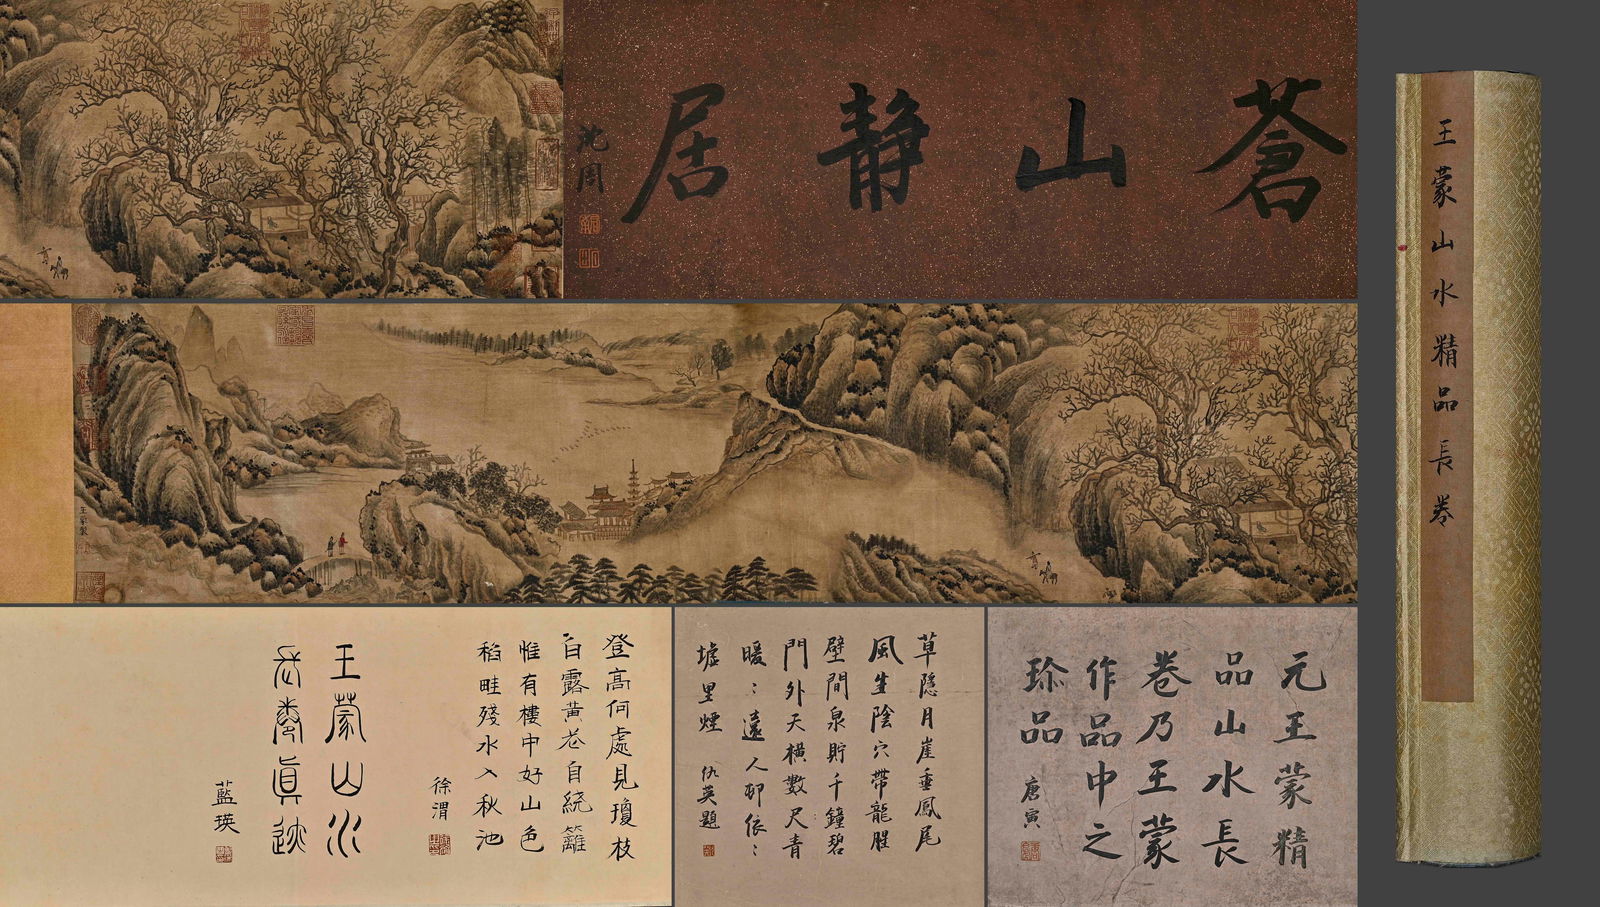 蒼山靜居
沈周
王蒙山水精品長卷
王蒙製
元王蒙精
品山水長
卷乃王蒙
作品中之
珎品
唐寅
草隱月崖垂鳳尾
風生陰穴帶龍腥
壁間泉貯千鐘碧
門外天橫數尺青
暖〻遠人邨依〻
墟里煙
仇英題
登高何處見瓊枝
白露黃花自繞籬
惟有樓中好山色
稻畦殘水入秋池
徐渭
王蒙山水
長卷真迹
藍瑛